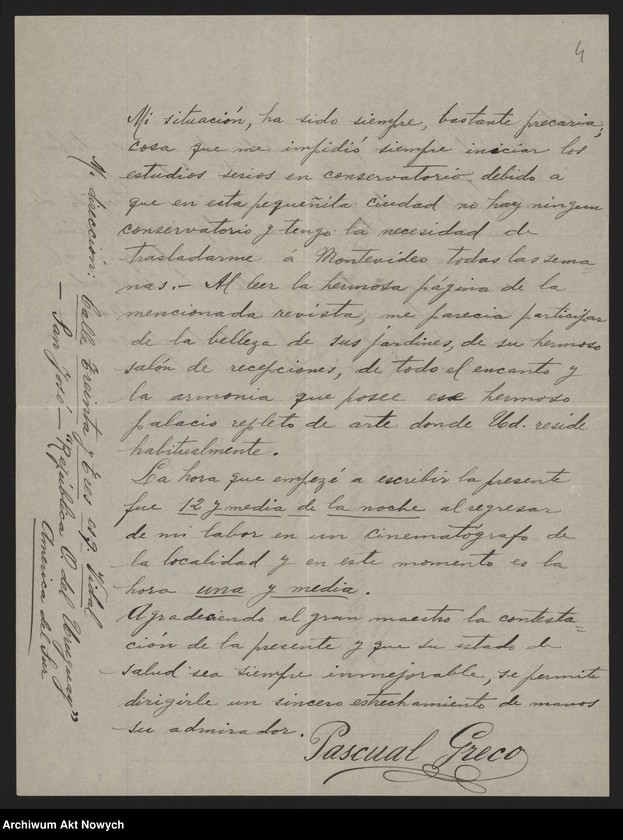 4
Mi situación, ha sido siempre, bastante precaria,
cosa que me impidió siempre iniciar los
estudios serios en conservatorio debido á
que en esta pequeñita ciudad no hay ningun
conservatorio y tengo la necesidad de
trasladarme á Montevideo todas las sema=
nas.- Al leer la hermosa página de la
mencionada revista, me parecia participar
de la belleza de sus jardines, de su hermoso
salón de recepciones, de todo el encanto y
la armonia que posee ese hermoso
palacio repleto de arte donde Ud. reside
habitualmente.
La hora que empezé a escribir la presente
fue 12 y media de la noche al regresar
de mi labor en un cinematógrafo de
la localidad y en este momento es la
hora una y media.
Agradeciendo al gran maestro la contesta=
ción de la presente y que su estado de
salud sea siempre inmejorable, se permite
dirigirle un sincero estrechamiento de manos
su admirador.
Pascual Greco
Mi dirección: Calle Treinta y Tres esq. Vidal
— San José — "República O. del Uruguay"
America del Sur
Archiwum Akt Nowych